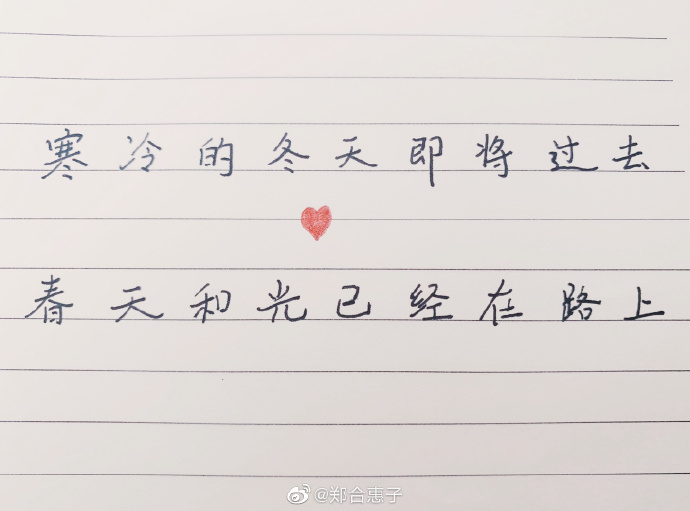 寒冷的冬天即将过去
春天和光已经在路上
@郑合惠子